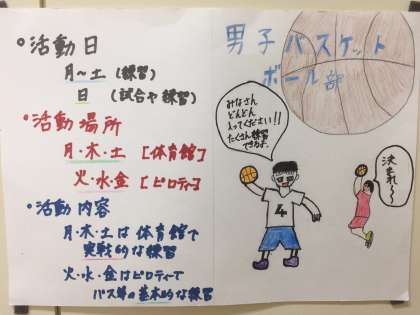 男子バスケット
ボール部
•活動日
月〜土 (練習)
日 (試合や練習)
•活動場所
月・木・土 [体育館]
火・水・金 [ピロティー]
•活動内容
月・木・土は体育館で
実戦的な練習
火・水・金はピロティーで
パス等の基本的な練習
みなさん
どんどん
入ってください!!
たくさん練習
できるよ。
決まれ〜
4